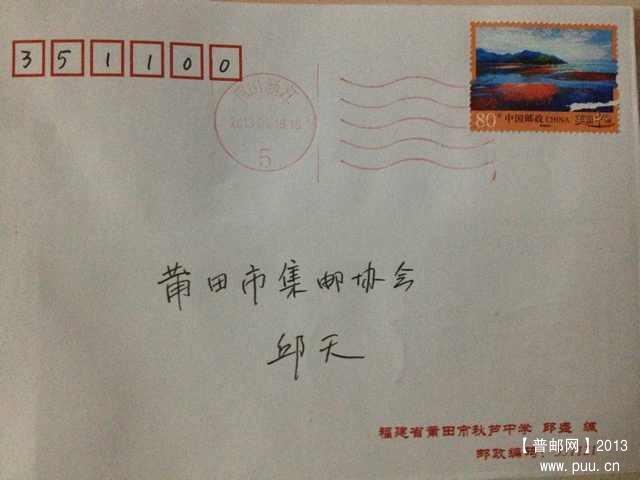 351100
2013.
5
80分 中国邮政 CHINA
莆田市集邮协会
邱天
福建省莆田市秋芦中学 邱盛 缄
邮政编码:
【普邮网】2013
www.puu.cn